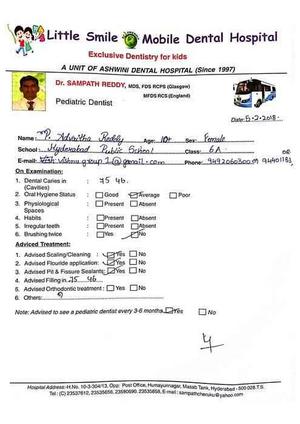 Little Smile Mobile Dental Hospital
Exclusive Dentistry for kids
A UNIT OF ASHWINI DENTAL HOSPITAL (Since 1997)
Dr. SAMPATH REDDY, MDS, FDS RCPS (Glasgow)
MFDS RCS (England)
Pediatric Dentist
Date: 5-2-2018.
Name: P. Advaitha Reddy Age: 10+ Sex: Female
School: Hyderabad Public School Class: 6A
E-mail: vishnu group 1@gmail.com Phone: 9492060300
On Examination:
1. Dental Caries in : 75 46.
(Cavities)
2. Oral Hygiene Status : Good Average Poor
3. Physiological : Present Absent
Spaces
4. Habits : Present Absent
5. Irregular teeth : Present Absent
6. Brushing twice : Yes No
Adviced Treatment:
1. Advised Scaling/Cleaning : Yes No
2. Advised Flouride application: Yes No
3. Advised Pit & Fissure Sealants: Yes No
4. Advised Filling in 75 46.
5. Advised Orthodontic treatment : Yes No
6. Others:
Note: Advised to see a pediatric dentist every 3-6 months Yes No
Hospital Address: H.No. 10-3-304/13, Opp: Post Office, Humayunnagar, Masab Tank, Hyderabad - 500 028.T.S.
Tel: (C) 23537612, 23535656, 23580690, 23535858, E-mail : sampathchenuku@yahoo.com